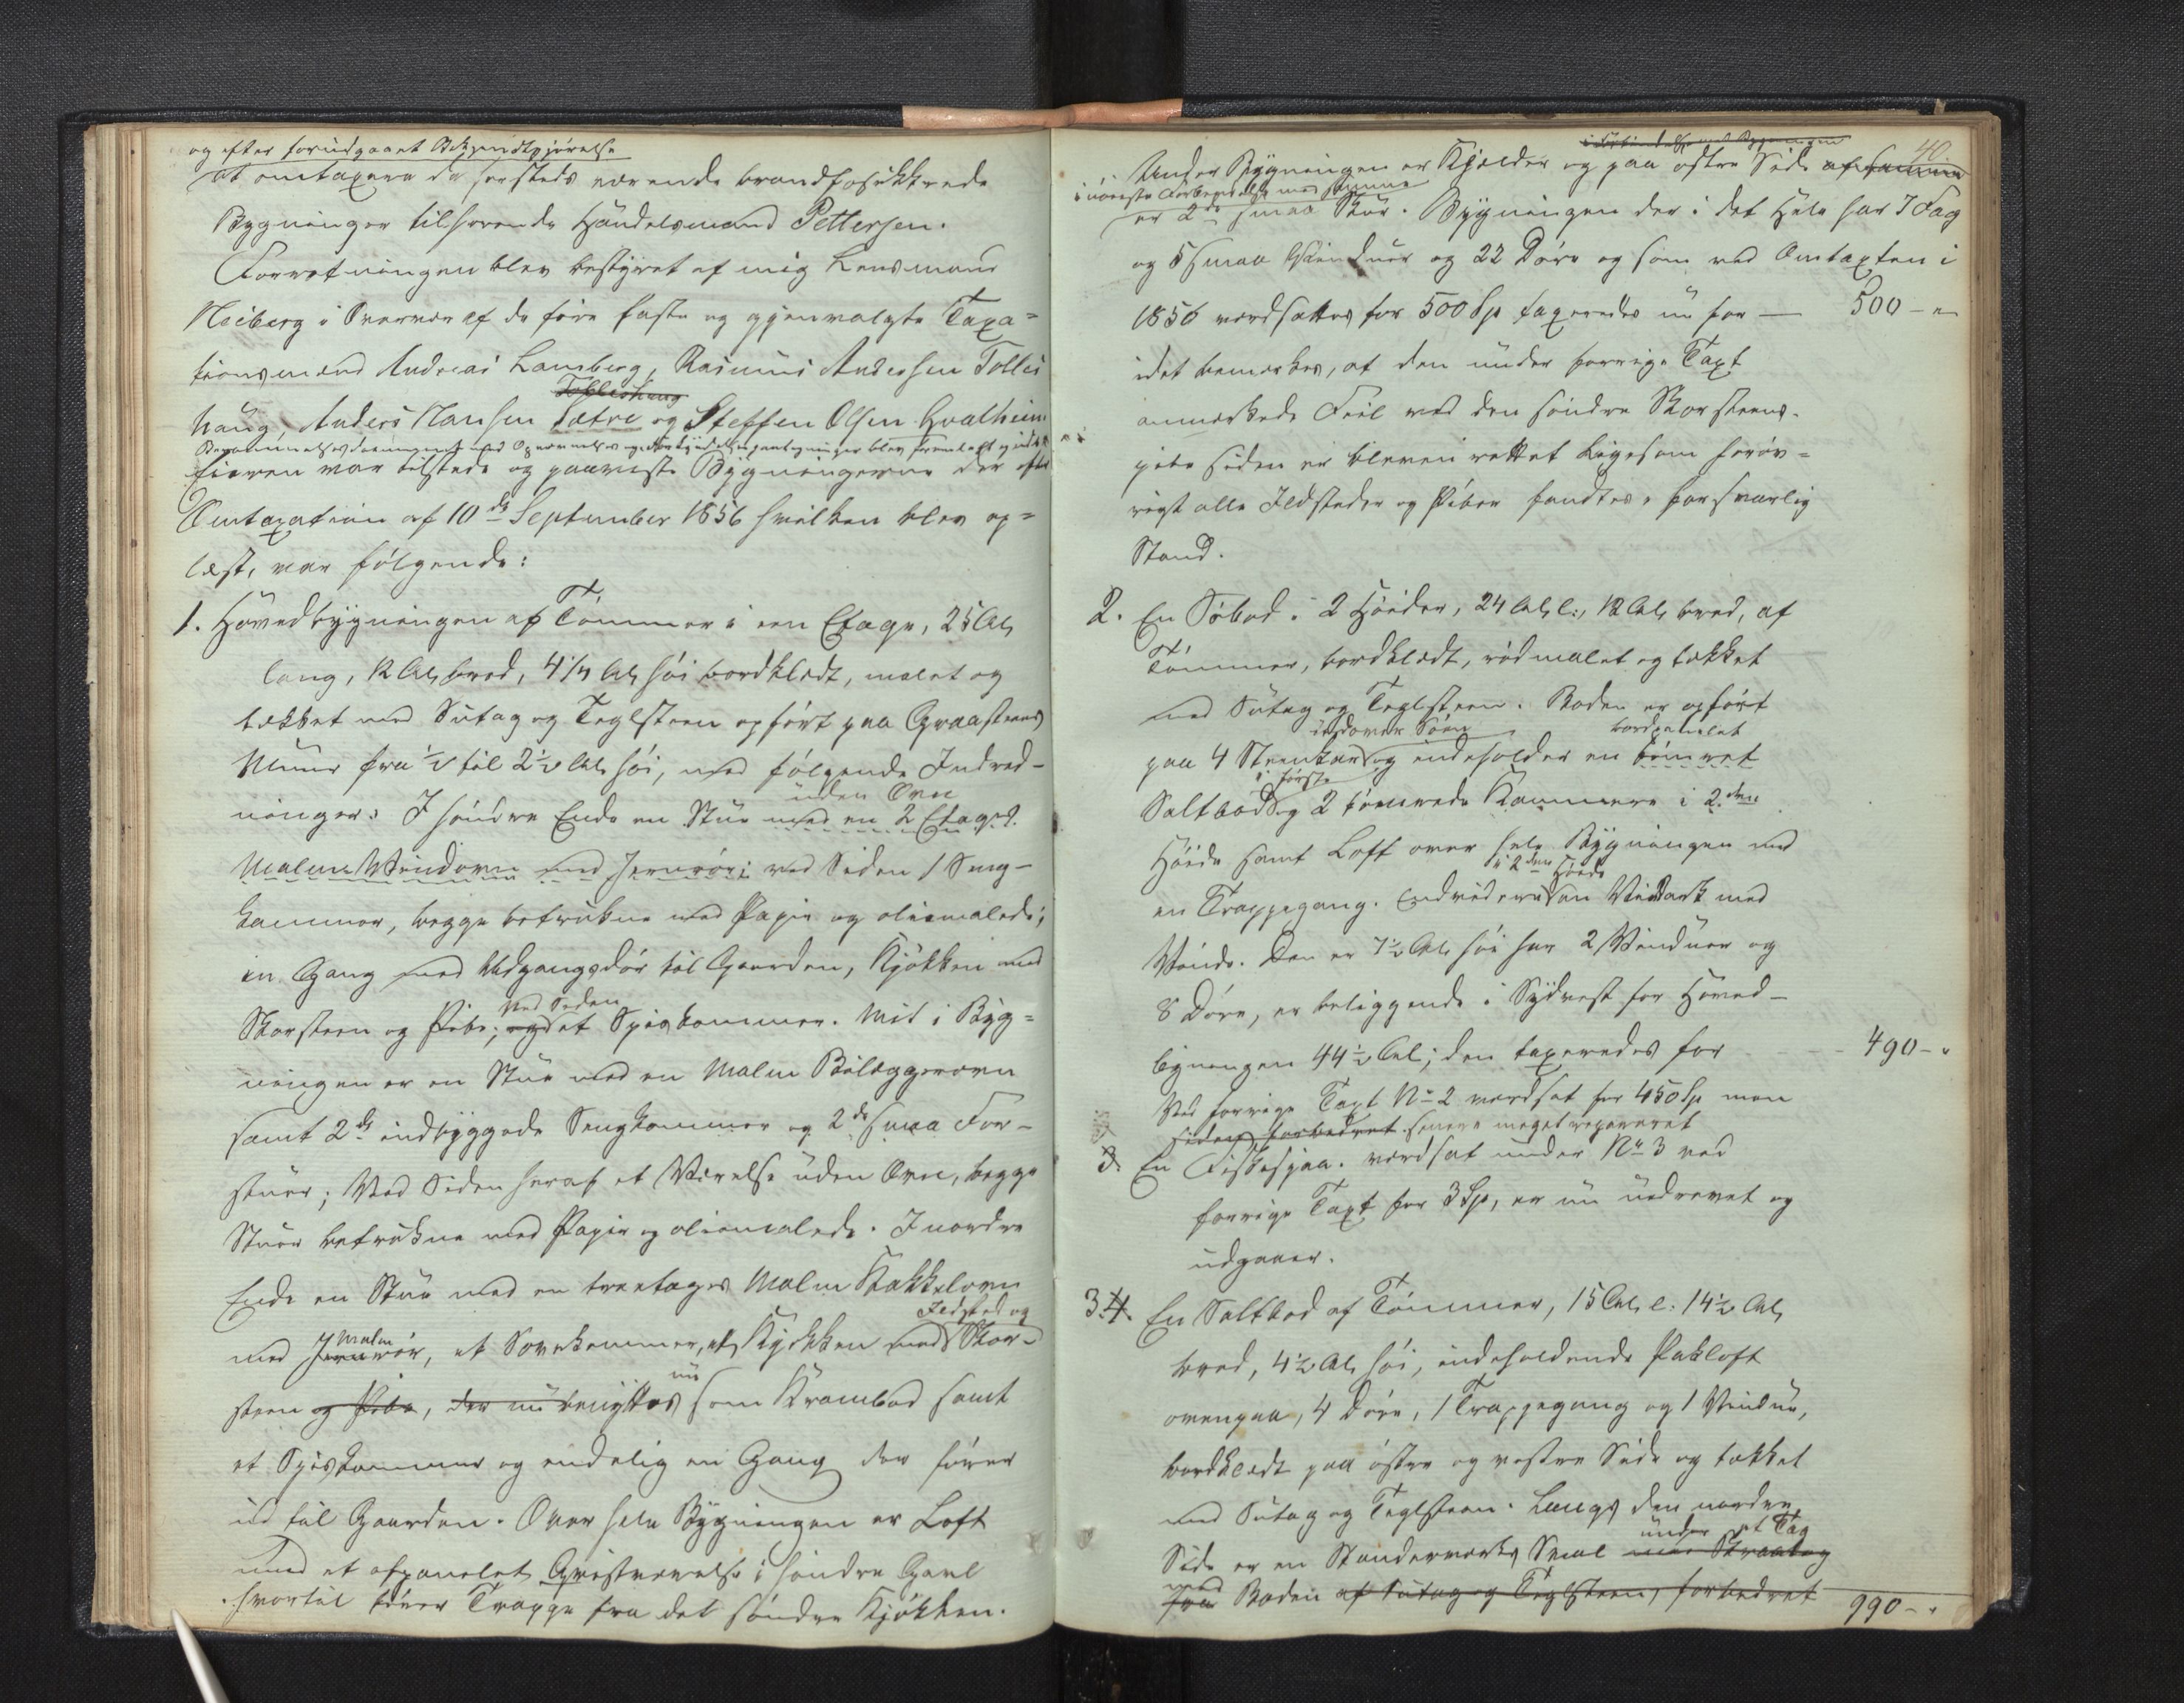 og efter forudgaaet Bekjendtgjørelse
at omtaxere de hersteds værende brandforsikkrede
Bygninger tilhørende Handelsmand Pettersen.
Forretningen blev bestyret af mig Lensmand
Neiberg i Overvær af de fire faste og gjenvalgte Taxa=
tionsmænd Andreas Lamberg, Rasmus Andersen Tolles
Tolleshaug
haug, Anders Hansen Sætre og Steffen Olsen Hvalheim
Eieren var tilstede og paaviste Bygningerne der efter
Omtaxation af 10de September 1856 hvilken blev op=
læst, var følgende:
1. Hovedbygningen af Tømmer i een Etage, 25 Al.
lang, 12 Al. bred, 4 1/4 Al. høi bordklædt, malet og
tækket med Sutag og Teglsteen opført paa Graasteens
Muur fra 1/2 til 2 1/2 Al. høi, med følgende Indred-
uden Ovn
ninger: I søndre Ende en Stue med en 2 Etages
Malm Vindovn med Jernrør; ved Siden 1 Seng-
kammer, begge betrukne med Papir og oliemalede;
en Gang med Udgangsdør til Gaarden, Kjøkken med
Ved Siden
Skorsteen og Pibe; og et Spiskammer. Mit i Byg=
ningen er en Stue med en Malm Bilæggerovn
samt 2de indbyggede Sengkammer og 2de smaa For-
stuer; Ved Siden heraf et Værelse uden Ovn, begge
Stuer betrukne med Papir og oliemalede. I nordre
Ende en Stue med en treetages Malm Kakkelovn
Ildsted og
Malm
med Jernrør, et Sovekammer, et Kjøkken med Skor-
nu
steen og Pibe, der nu benyttes som Krambod samt
et Spiskammer og endelig en Gang der fører
ud til Gaarden. Over hele Bygningen er Loft
med et afpanelet Qvistværelse i søndre Gavl
hvortil fører Trappe fra det søndre Kjøkken.
40.
i Forbindelse med Bygningen
Under Bygningen er Kjelder og paa østre Side af samme
i nøieste Forbindelse med samme
er 2de smaa Skur. Bygningen der i det Hele har 7 Fag
og 5 smaa Vinduer og 22 Døre og som ved Omtaxten i
1856 værdsattes for 500 Sp taxeredes nu for — 500 - "
idet bemærkes, at den under forrige Taxt
anmærkede Feil ved den søndre Skorsteens-
pibe siden er bleven rettet ligesom forøv=
rigt alle Ildsteder og Piber fandtes i forsvarlig
Stand.
2. En Søbod i 2 Høider, 24 Al. l., 12 Al. bred, af
Tømmer, bordklædt, rødmalet og tækket
med Sutag og Teglsteen. Boden er opført
udover Søen bordpanelet
paa 4 Steenkar og indeholder en tømret
i første
Saltbod og 2 tømrede Kammere i 2den
Høide samt Loft over hele Bygningen med
i 2den Høide
en Trappegang. Endvidere en Vindark med
Vinde. Den er 7 1/2 Al. høi har 2 Vinduer og
8 Døre, er beliggende i Sydvest for Hoved-
bygningen 44 1/2 Al; den taxeredes for — 490 - "
Ved forrige Taxt No 2 værdsat for 450 Sp men
siden forbedret senere meget repareret
3. En Fiskesjaa værdsat under No 3 ved
forrige Taxt for 3 Sp, er nu nedrevet og
udgaaer.
3. 4. En Saltbod af Tømmer, 15 Al. l. 14 1/2 Al.
bred, 4 1/2 Al. høi, indeholdende Pakloft
ovenpaa, 4 Døre, 1 Trappegang og 1 Vindue,
bordklædt paa østre og vestre Side og tækket
med Sutag og Teglsteen. Langs den nordre
under et Tag
Side er en Standerverks Sval med Skraatag
med
fra Boden af Sutag og Teglsteen, forbedret
990 - "